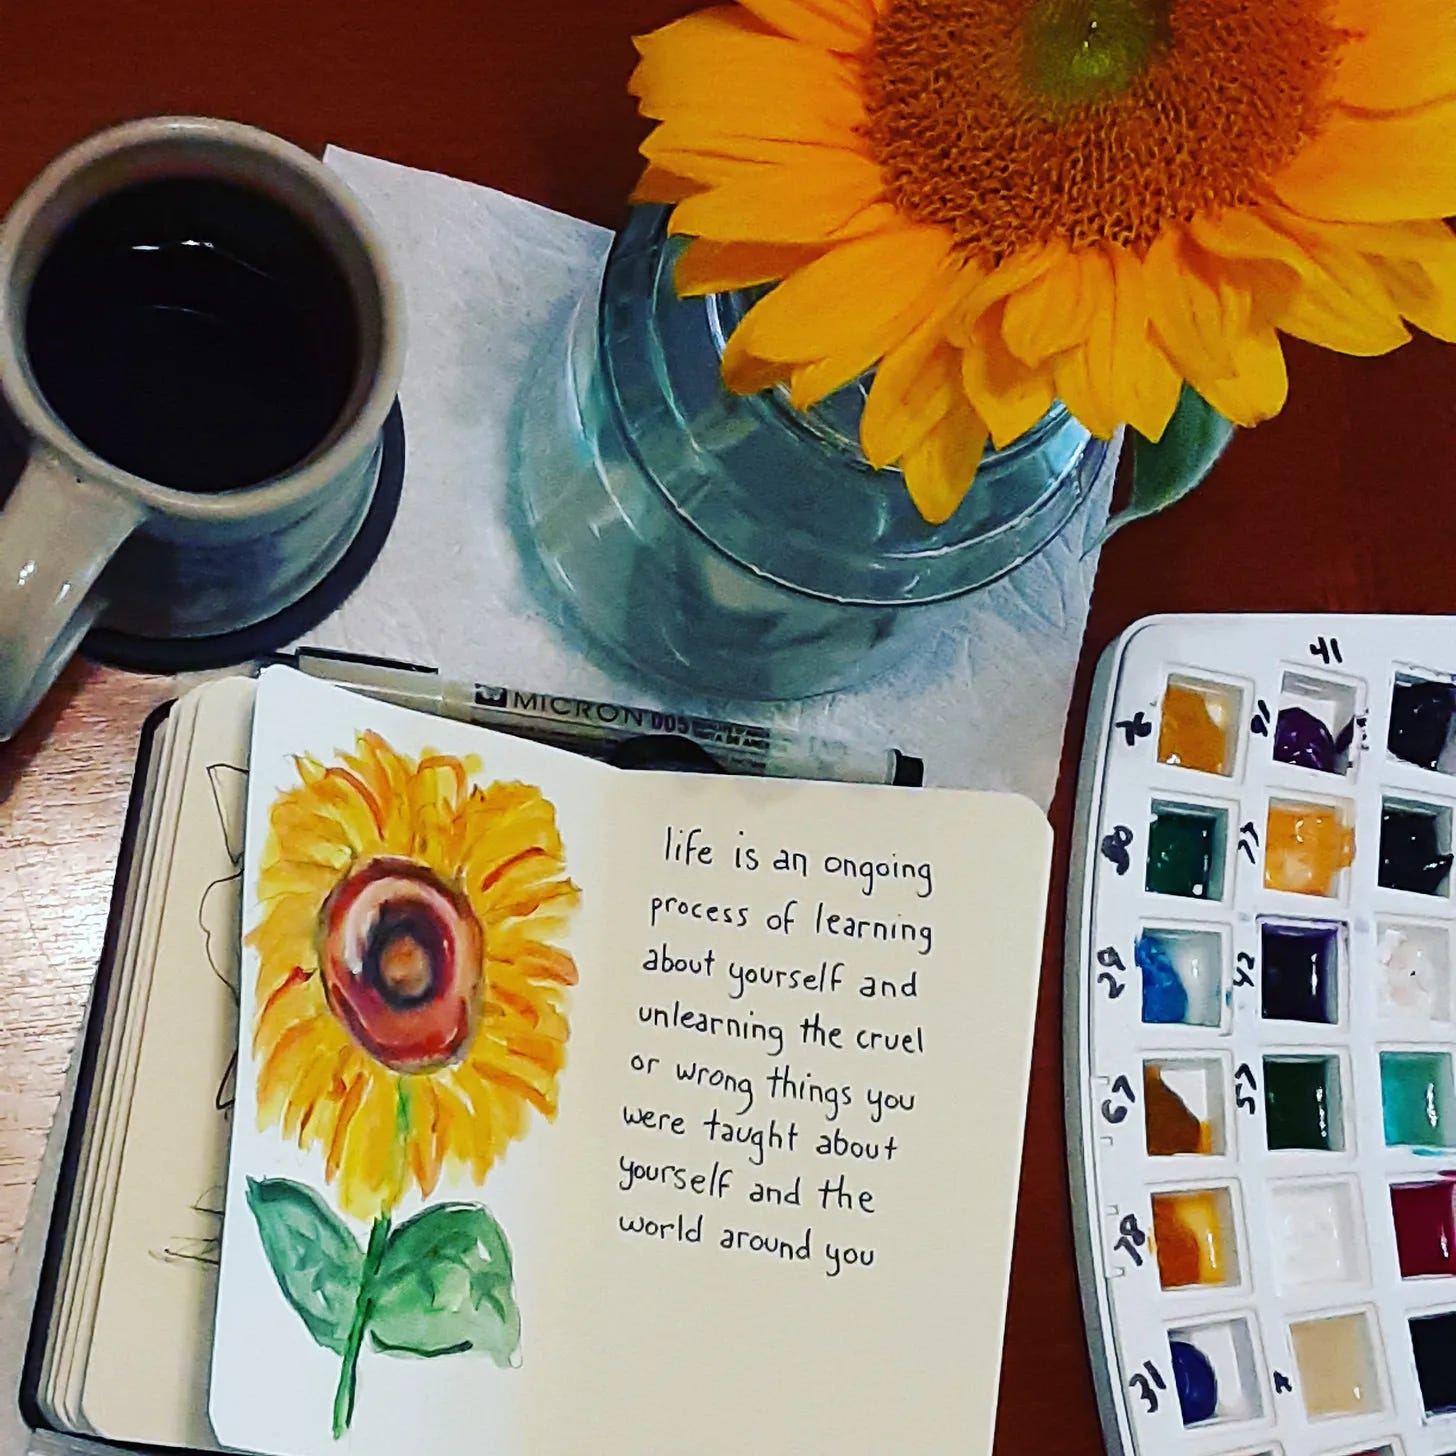 MICRON 005
41
76
91
80
77
29
42
67
57
78
31
life is an ongoing
process of learning
about yourself and
unlearning the cruel
or wrong things you
were taught about
yourself and the
world around you